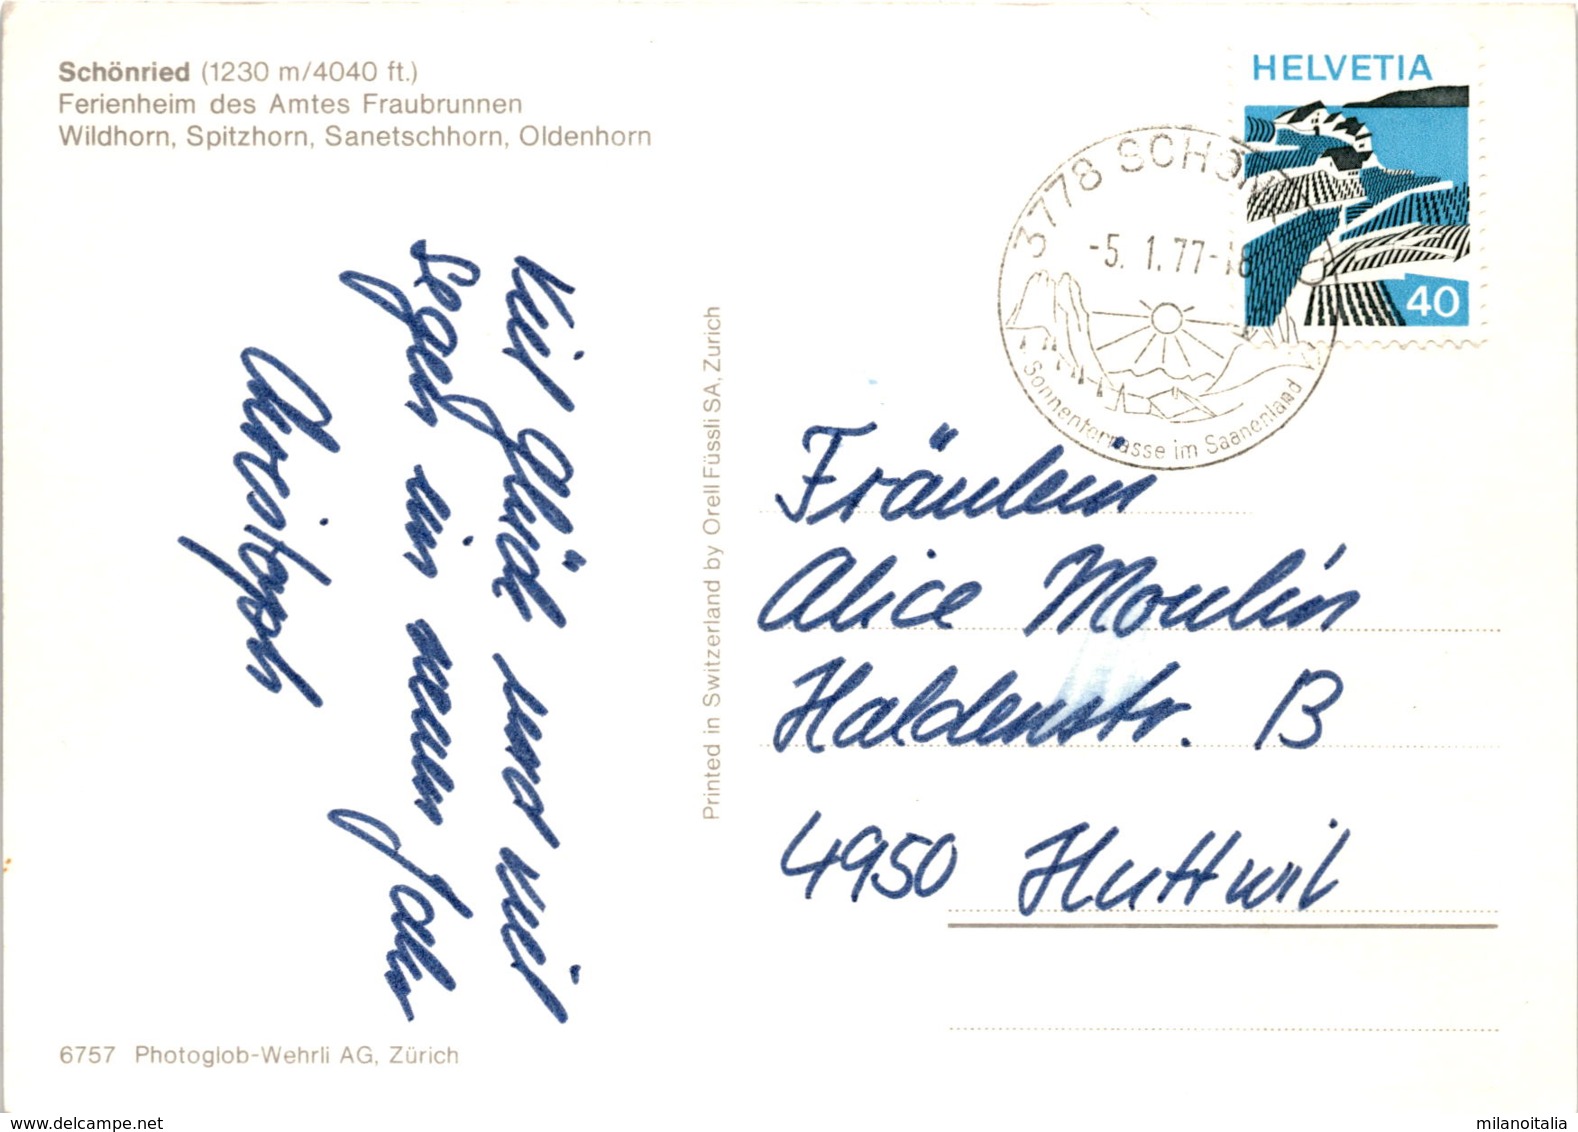 Schönried (1230 m/4040 ft.)
Ferienheim des Amtes Fraubrunnen
Wildhorn, Spitzhorn, Sanetschhorn, Oldenhorn
Viel Glück und viel
Segen im neuen Jahr
Christoph
6757 Photoglob-Wehrli AG, Zürich
Printed in Switzerland by Orell Füssli SA, Zurich
HELVETIA
40
3778 SCHÖNRIED
-5. 1. 77-18
Sonnenterrasse im Saanenland
Fräulein
Alice Moulin
Haldenstr. B
4950 Huttwil
www.delcampe.net
milanoitalia